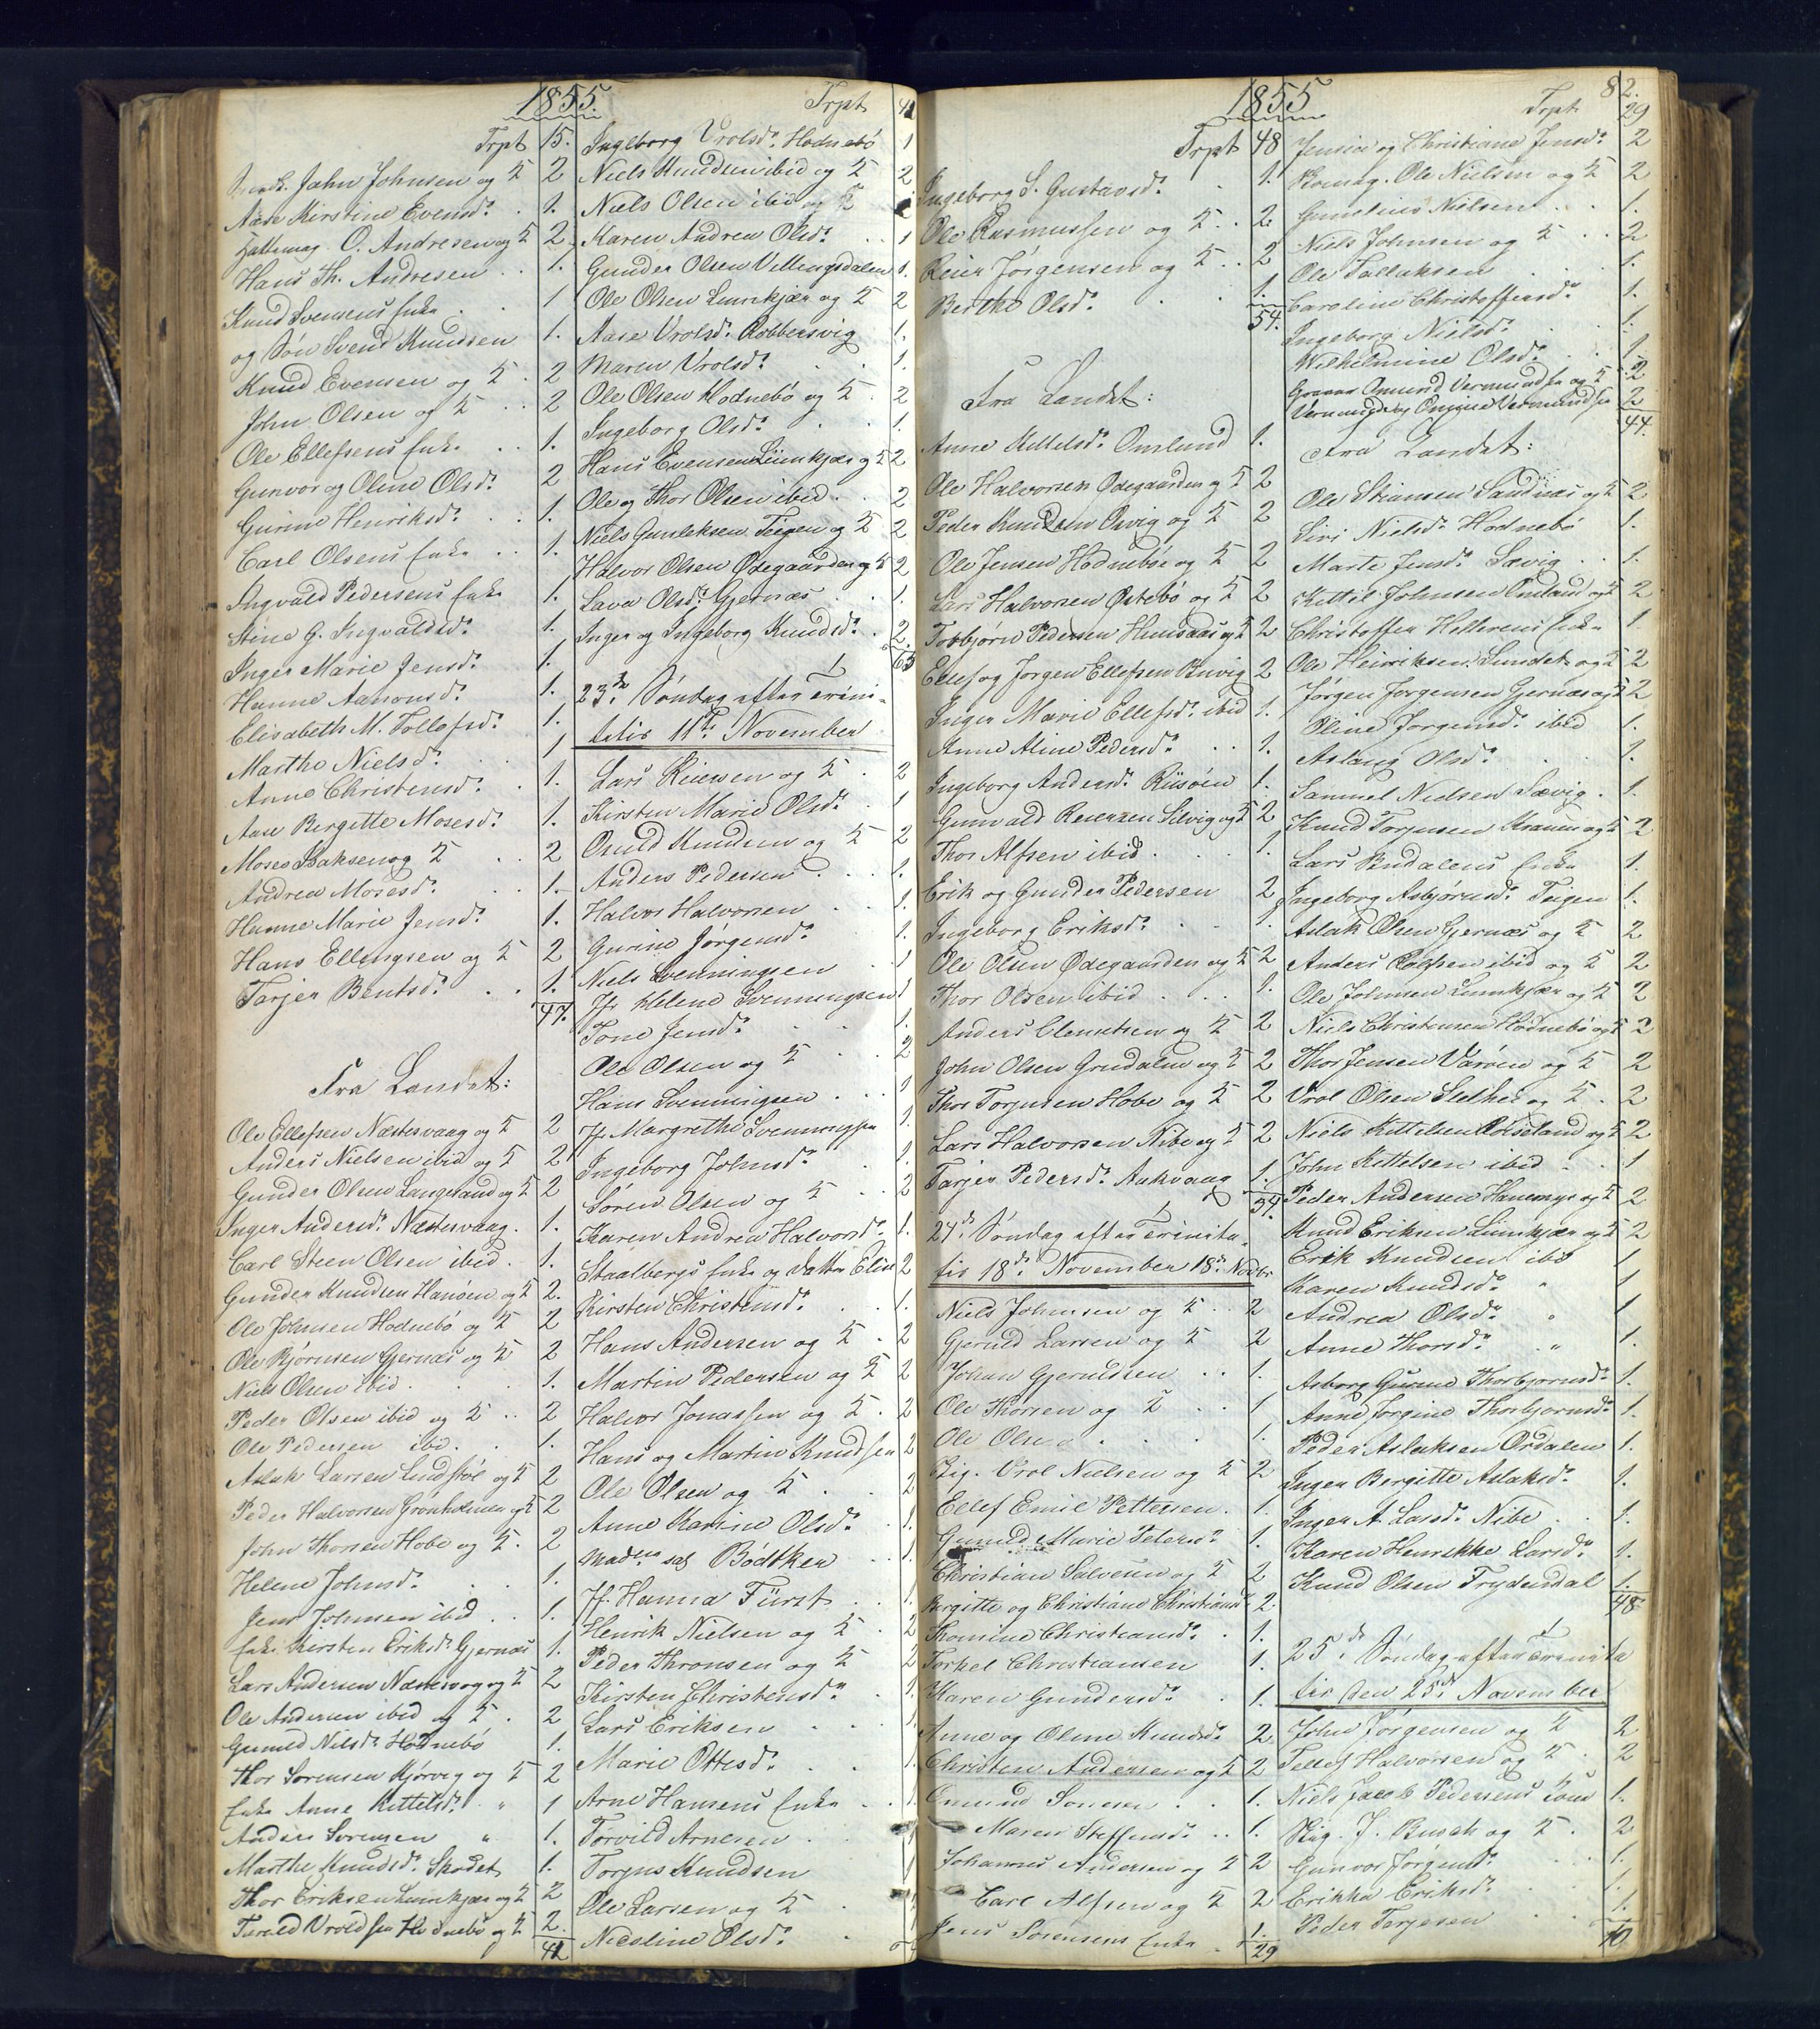 1855.
Trpt 15.
Jahn Johnsen og K 2
Aase Kirstine Evensd. 1.
Hattemag. O. Andresen og K 2.
Hans Th. Andresen 1.
Knud Svensens Enke 1
og Søn Svend Knudsen 1.
Knud Evensen og K 2
John Olsen og K 2
Ole Ellefsens Enke 1.
Gunvor og Oline Olsd. 2
Gurine Henriksd. 1.
Carl Olsens Enke 1.
Ingvald Pedersens Enke 1.
Stine G. Ingvaldsd. 1.
Inger Marie Jensd. 1.
Hanne Aanonsd. 1.
Elisabeth M. Tollefsd. 1.
Marthe Nielsd. 1
Anne Christensd. 1.
Aase Bergitte Mosesd. 1.
Moses Isaksen og K 2
Andrea Mosesd. 1.
Hanne Marie Jensd. 1.
Hans Ellingsen og K 2
Tarjer Bentsd. 1.
47.
Fra Landet:
Ole Ellefsen Næstesvaag og K 2
Anders Nielsen ibid og K 2
Gunder Olsen Langesand og K 2
Inger Andersd. Næstesvaag. 1.
Carl Steen Olsen ibid. 1.
Gunder Knudsen Hansøen og K 2.
Ole Johnsen Hodnebø og K 2
Ole Bjørnsen Gjernæs og K 2
Niels Olsen ibid. 1.
Peder Olsen ibid og K 2
Ole Pedersen ibid. 1.
Aslak Larsen Lindstøl og K 2
Peder Halvorsen Grønholmen og K 2
John Thorsen Hobe og K. 2
Helene Johnsd. 1.
Jens Johnsen ibid 1.
Enke Kirsten Eriksd. Gjernæs 1.
Lars Andersen Næstesvog og K 2
Ole Andersen ibid og K. 2
Gunild Nilsd. Hodnebø 1.
Thor Sørensen Kjørvig og K 2
Enke Anne Kittelsd. " 1
Anders Sørensen " 1.
Marthe Knudsd. Skodet 1.
Thor Eriksen Lunekjær og K 2
Tarald Vroldsen Hodnebø og K 2.
41
Trpt 41
Ingeborg Vrolsd. Hodnebø 1
Niels Knudsen ibid og K 2
Niels Olsen ibid og K 2
Karen Andrea Olsd. 1
Gunder Olsen Vellingsdalen 1.
Ole Olsen Lunekjær og K 2
Aase Vrolsd. Robbersvig 1.
Maren Vrolsd. 1.
Ole Olsen Hodnebø og K. 2
Ingeborg Olsd. 1.
Hans Evensen Lunekjær og K 2
Ole og Thor Olsen ibid. 2
Niels Gunleksen Teigen og K 2
Halvor Olsen Ødegaarden og K 2
Lava Olsd. Gjernæs 1.
Inger og Ingeborg Knudsd. 2.
65
23de Søndag efter Trini-
tatis 11te November
Lars Reiersen og K. 2
Kirsten Marie Olsd. 1
Osuld Knudsen og K 2
Anders Pedersen 1.
Halvor Halvorsen 1.
Gurine Jørgensd. 1.
Niels Svenningsen 1
Jfr Helene Svenningsen 1
Tone Jensd. 1.
Ole Olsen og K 2
Hans Svenningsen 1
Jfr. Margrethe Svenningsen 1.
Ingeborg Johnsd. 1.
Søren Olsen og K 2
Karen Andrea Halvorsd. 1.
Staalbergs Enke og Datter Elise 2
Kirsten Christensd. 1.
Hans Andersen og K. 2
Martin Pedersen og K 2
Halvor Jonassen og K. 2
Hans og Martin Knudsen 2
Ole Olsen og K 2
Anne Karine Olsd. 1.
Mad. sal. Bödtker 1.
Jf. Hanna Fürst 1
Henrik Nielsen og K. 2
Peder Thronsen og K 2
Kirsten Christensd. 1.
Lars Eriksen 1.
Marie Ottesd. 1.
Arne Hansens Enke 1.
Torvild Arnesen 1
Torjus Knudsen 1
Ole Larsen og K
Nicoline Olsd.
1855
82.
Trpt 48
Ingeborg S. Gustavsd. 1.
Ole Rasmussen og K 2.
Reier Jørgensen og K 2
Berthe Olsd. 1.
54.
Fra Landet:
Anne Kittelsd. Omlund 1.
Ole Halvorsen Ødegaarden og K 2
Peder Knudsen Orvig og K 2
Ole Jensen Hodnebøe og K 2
Lars Halvorsen Østebø og K 2
Torbjørn Pedersen Hunsaas og K 2
Ellef og Jørgen Ellefsen 2
Inger Marie Ellefsd. ibid 1.
Anne Aline Pedersd. 1.
Ingeborg Andersd. Risøen 1.
Gunvald Reiersen Silvig og K 2
Thor Alfsen ibid 1.
Erik og Gunder Pedersen 2
Ingeborg Eriksd. 1.
Ole Olsen Ødegaarden og K 2
Thor Olsen ibid 1.
Anders Clemetsen og K 2
John Olsen Grudalen og K 2
Thor Torjusen Hobe og K 2
Lars Halvorsen Nibe og K 2
Tarjer Pedersd. Aakvaag 1.
54.
24de Søndag efter Trinita-
tis 18de November 18de Novbr.
Niels Johnsen og K 2
Gjeruld Larsen og K 2
Johan Gjeruldsen 1.
Ole Thorsen og K 1
Ole Olsen 1.
Vrol Nielsen og K 2
Ellef Emil Pettersen. 1.
Gunild Marie Petersd. 1.
Christian Salvesen og K 2
Birgitte og Christiane Christiansd. 2.
Thomine Christiansd. 1.
Torkel Christiansen 1.
Karen Gundersd. 1.
Anne og Oline Knudsd. 2
Christen Andersen og K 2
Omund Sonesen 1.
Maren Steffensd. 1.
Johannes Andersen og K 2
Carl Alfsen og K 2
Jens Sørensens Enke 1.
29
Trpt 29
Jensine og Christiane Jensd. 2
Skomag. Ole Nielsen og K 2
Gunelius Nielsen 1.
Niels Johnsen og K 2
Ole Tallaksen 1.
Caroline Christoffersd. 1.
Ingeborg Nielsd. 1.
Wilhelmine Olsd. 1.
Omund Vermundsen og K 2
Vermundsen 2
44.
Fra Landet:
Ole Stiansen Sandnæs og K 2
Siri Nielsd. Hodnebø 1.
Marte Jensd. Sævig 1.
Kittil Johnsen Omland og K 2
Christoffer Hellerens Enke 1
Ole Henriksen Sundet og K 2
Jørgen Jørgensen Gjernæs og K 2
Oline Jørgensd. ibid 1.
Aslaug Olsd. 1.
Samuel Nielsen Sævig. 1.
Knud Torjusen og K 2
Lars Budalens Enke 1.
Ingeborg Asbjørnsd. Teigen 1.
Aslak Olsen Gjernæs og K 2
Anders Roefsen ibid og K 2
Ole Johnsen Lunekjær og K 2
Niels Christensen Hodnebø og K 2
Thor Jensen Varøen og K 2
Vrol Olsen Slethei og K. 2
Niels Kittelsen Roiseland og K 2
John Kittelsen ibid 1
Peder Andersen Hanemyr og K 2
Knud Eriksen Lunekjær og K 2
Erik Knudsen ibd 1
Karen Knudsd. " 1
Andrea Olsd. " 1
Anne Thorsd. " 1.
Asborg Gurine Thorbjornsd. 1.
Anne Jorgine Thorbjornsd. 1.
Peder Aslaksen Ordalen 1.
Inger Bergitte Aslaksd. 1.
Inger A. Larsd. Nibe 1.
Karen Henrikke Larsd. 1.
Knud Olsen Trydendal 1.
48.
25de Søndag efter Trinita
tis den 25de November
John Jørgensen og K 2
Tellef Halvorsen og K. 2
Niels Jacob Pedersens Kone 1.
J. Busch og K. 2
Gunvor Jorgensd. 1.
Erikka Eriksd. 1.
Peder Terjesen 1.
10